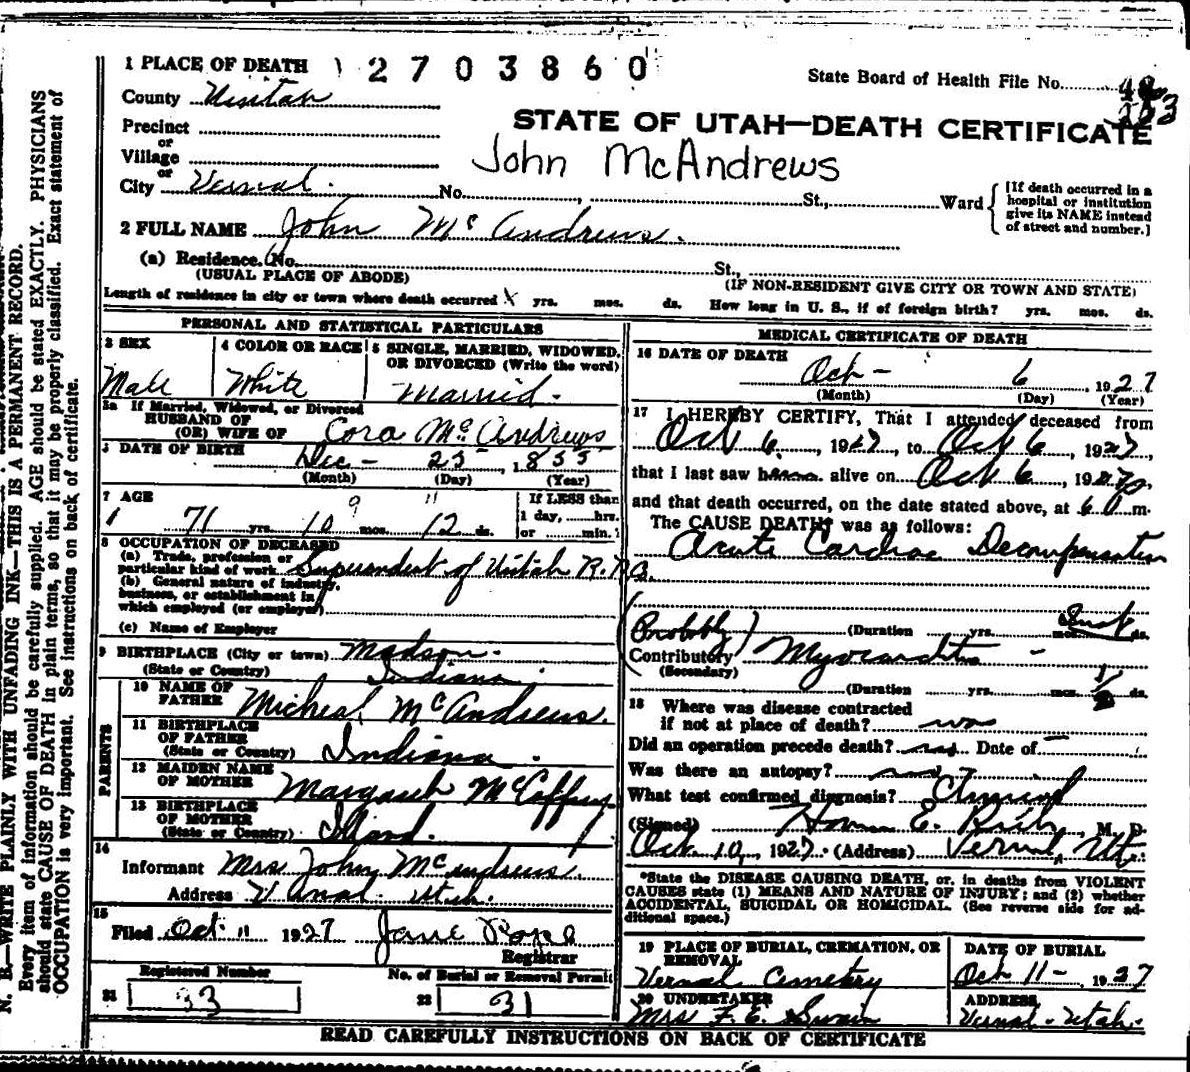 1 PLACE OF DEATH 2703860
State Board of Health File No.
County Uintah
STATE OF UTAH—DEATH CERTIFICATE
Precinct
or
Village
John McAndrews
or
City Vernal. No. , St., Ward
[If death occurred in a
hospital or institution
give its NAME instead
of street and number.]
2 FULL NAME John Mc Andrews.
(a) Residence. No. St.,
(USUAL PLACE OF ABODE) (IF NON-RESIDENT GIVE CITY OR TOWN AND STATE)
Length of residence in city or town where death occurred yrs. mos. ds. How long in U. S., if of foreign birth? yrs. mos. ds.
PERSONAL AND STATISTICAL PARTICULARS
3 SEX 4 COLOR OR RACE 5 SINGLE, MARRIED, WIDOWED,
OR DIVORCED (Write the word)
Male White Married.
5a If Married, Widowed, or Divorced
HUSBAND OF
(OR) WIFE OF Cora Mc Andrews
6 DATE OF BIRTH Dec - 25, 1855
(Month) (Day) (Year)
7 AGE 9 11 If LESS than
71 yrs. 10 mos. 12 ds. 1 day, hrs.
or min.
8 OCCUPATION OF DECEASED
(a) Trade, profession or
particular kind of work. Superendent of Uintah R.R. Co.
(b) General nature of industry,
business, or establishment in
which employed (or employer)
(c) Name of Employer
9 BIRTHPLACE (City or town) Madson.
(State or Country) Indiana.
PARENTS
10 NAME OF
FATHER Micheal McAndrews.
11 BIRTHPLACE
OF FATHER
(State or Country) Indiana.
12 MAIDEN NAME
OF MOTHER Margaret McCaffrey
13 BIRTHPLACE
OF MOTHER
(State or Country) Iland.
14
Informant Mrs John McAndrews.
Address Vernal Utah.
15
Filed Oct 11 1927
Registrar
Registered Number No. of Burial or Removal Permit
21 33 22 31
MEDICAL CERTIFICATE OF DEATH
16 DATE OF DEATH
Oct - 6, 1927
(Month) (Day) (Year)
17 I HEREBY CERTIFY, That I attended deceased from
Oct 6, 1927, to Oct 6, 1927,
that I last saw him alive on Oct 6, 1927,
and that death occurred, on the date stated above, at 6 m.
The CAUSE DEATH* was as follows:
Acute Cardiac Decompensation
(Probably) (Duration yrs. mos. ds.
Contributory Myocarditis -
(Secondary)
(Duration yrs. mos. ds.
18 Where was disease contracted
if not at place of death?
Did an operation precede death? no Date of —
Was there an autopsy? no
What test confirmed diagnosis? Clinical
(Signed) Homer E. Rich, M. D.
Oct 10, 1927. (Address) Vernal, Ut.
*State the DISEASE CAUSING DEATH, or, in deaths from VIOLENT
CAUSES state (1) MEANS AND NATURE OF INJURY; and (2) whether
ACCIDENTAL, SUICIDAL OR HOMICIDAL. (See reverse side for ad-
ditional space.)
19 PLACE OF BURIAL, CREMATION, OR
REMOVAL
Vernal Cemetery
DATE OF BURIAL
Oct 11 - 1927
20 UNDERTAKER
Mrs F. E. Swain
ADDRESS
Vernal - Utah.
READ CAREFULLY INSTRUCTIONS ON BACK OF CERTIFICATE
N. B.—WRITE PLAINLY WITH UNFADING INK—THIS IS A PERMANENT RECORD.
Every item of information should be carefully supplied. AGE should be stated EXACTLY. PHYSICIANS
should state CAUSE OF DEATH in plain terms, so that it may be properly classified. Exact statement of
OCCUPATION is very important. See instructions on back of certificate.